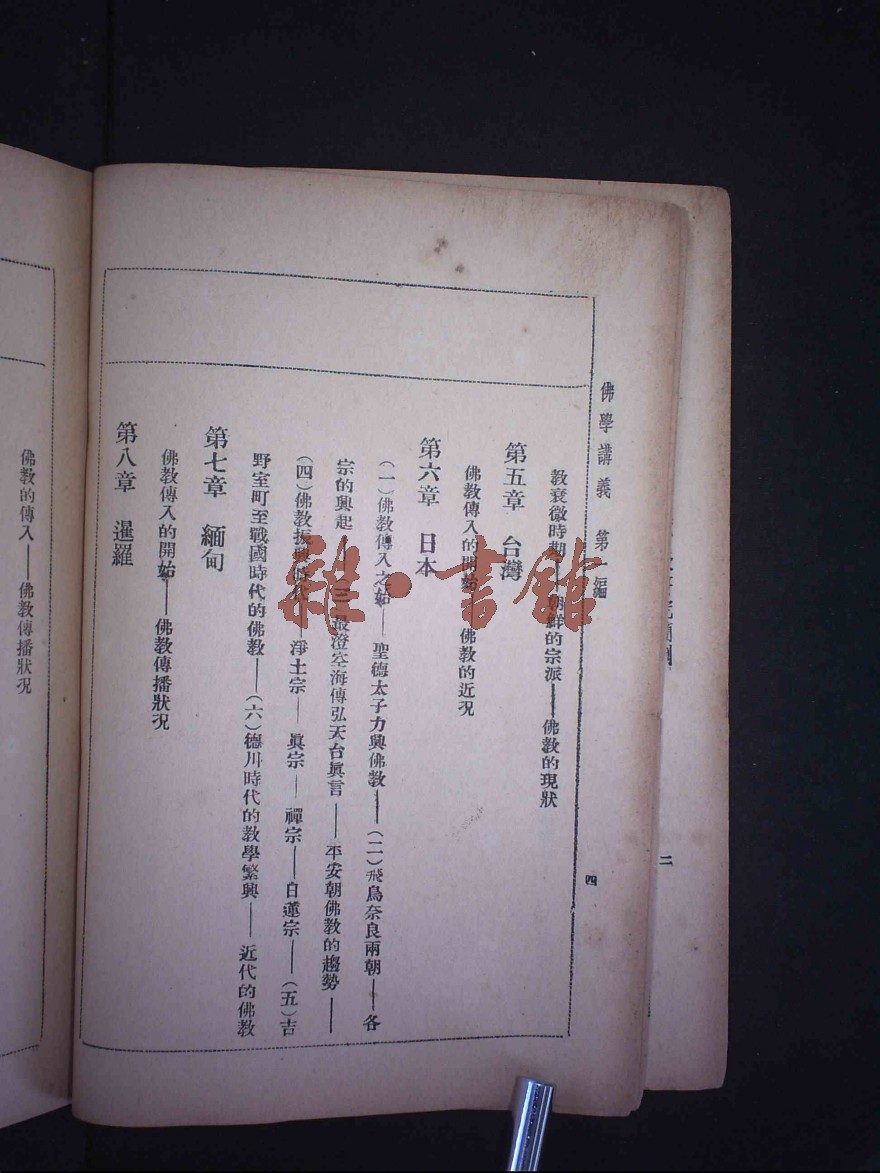 佛學講義 第一編
四
教衰微時期——朝鮮的宗派——佛教的現狀
第五章 台灣
佛教傳入的開始——佛教的近況
第六章 日本
(一)佛教傳入之始——聖德太子力興佛教——(二)飛鳥奈良兩朝——各
宗的興起——(三)最澄空海傳弘天台眞言——平安朝佛教的趨勢——
(四)佛教振興時代——淨土宗——眞宗——禪宗——日蓮宗——(五)吉
野室町至戰國時代的佛教——(六)德川時代的教學繁興——近代的佛教
第七章 緬甸
佛教傳入的開始——佛教傳播狀況
第八章 暹羅
佛教的傳入——佛教傳播狀况
二
雜·書館